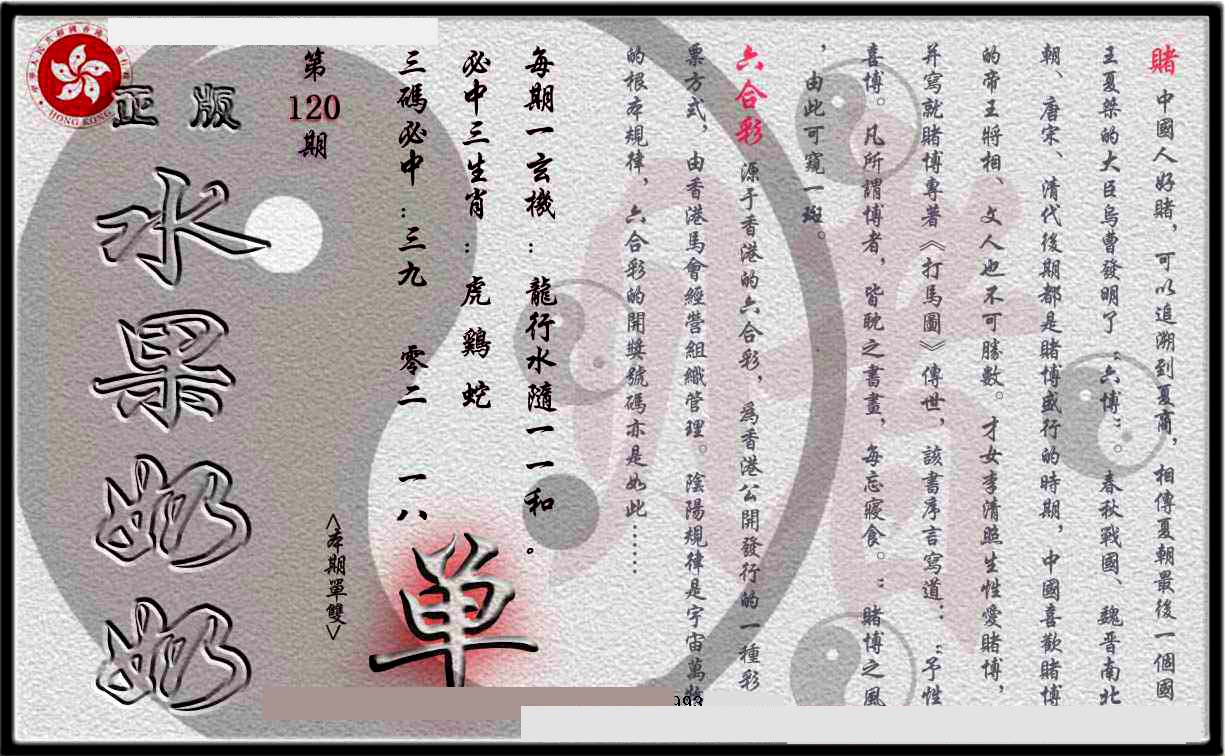 賭 中國人好賭，可以追溯到夏商，相傳夏朝最後一個國
王夏桀的大臣烏曹發明了“六博”。春秋戰國、魏晉南北
朝、唐宋、清代後期都是賭博盛行的時期，中國喜歡賭博
的帝王將相、文人也不可勝數。才女李清照生性愛賭博，
并寫就賭博專著《打馬圖》傳世，該書序言寫道：“予性
喜博。凡所謂博者，皆耽之書畫，每忘寢食。”賭博之風
，由此可窺一斑。
六合彩 源于香港的六合彩，為香港公開發行的一種彩
票方式，由香港馬會經營組織管理。陰陽規律是宇宙萬物
的根本規律，六合彩的開獎號碼亦是如此……
每期一玄機：龍行水隨一一和。
必中三生肖：虎 鷄 蛇
三碼必中：三九 零二 一八
單
第
120
期
<本期單雙>
正版
水果奶奶
HONG KONG
993